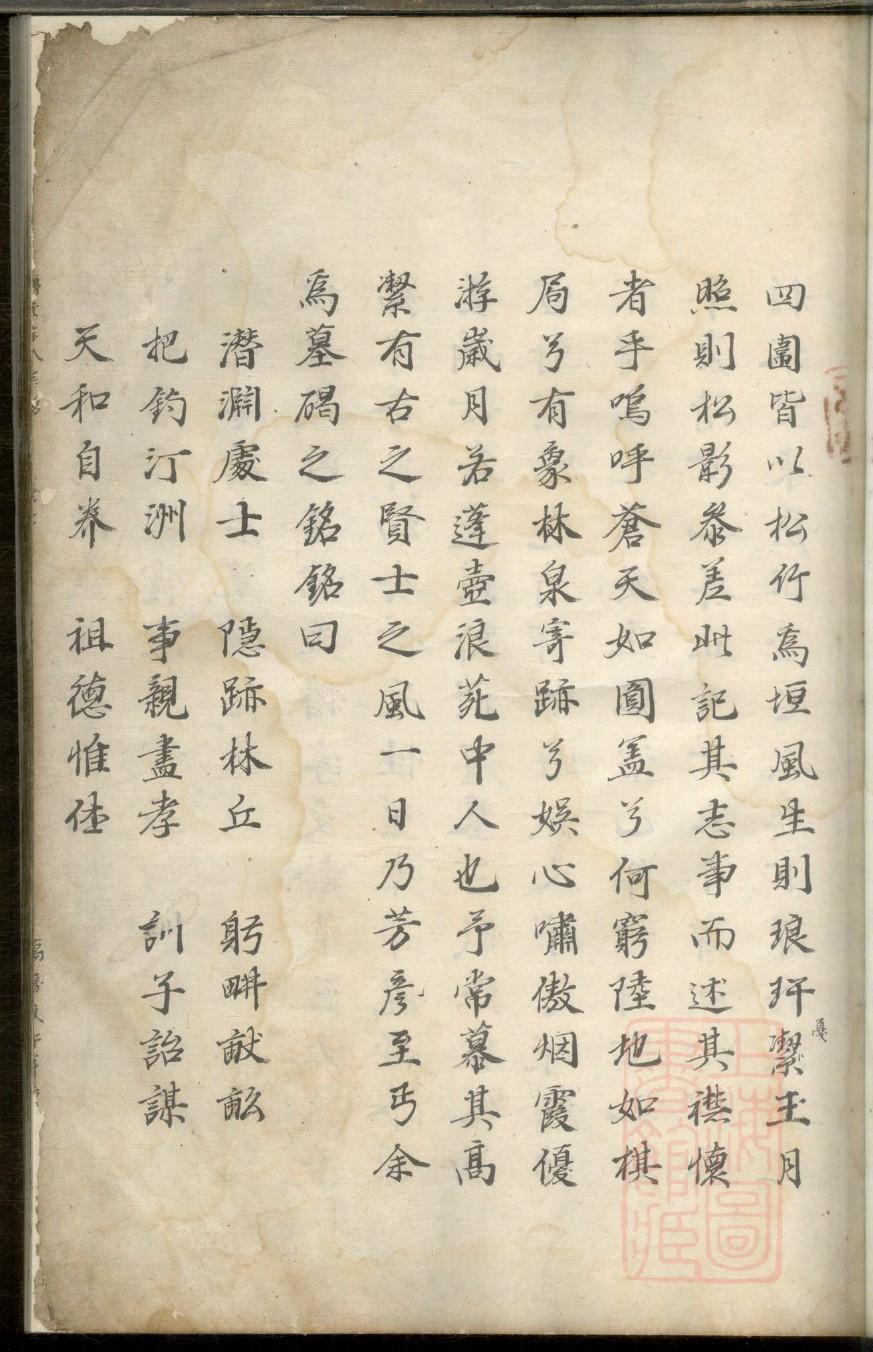 四圍皆以松竹為垣風生則琅玕潔玉月
戞
照則松影參差此記其志事而述其襟懷
者乎嗚呼蒼天如圓盖兮何窮陸地如棋
局兮有象林泉寄跡兮娛心嘯傲烟霞優
游歲月若蓬壺浪苑中人也予常慕其高
潔有古之賢士之風一日乃芳彦至丐余
為墓碣之銘銘曰
潛淵處士 隱跡林丘 躬畊畎畝
把釣汀洲 事親盡孝 訓子詒謀
天和自养 祖德惟
上海圖書館藏